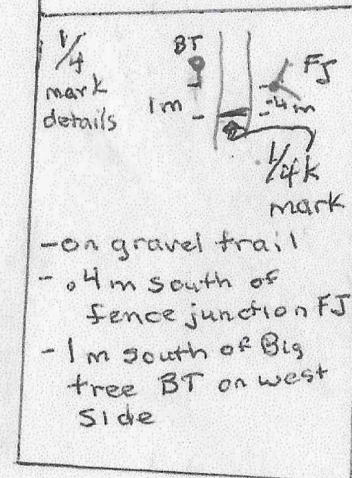 1/4
mark
details
BT
FJ
1m
.4m
1/4k
mark
- on gravel trail
- .4m south of
fence junction FJ
- 1m south of Big
tree BT on west
side